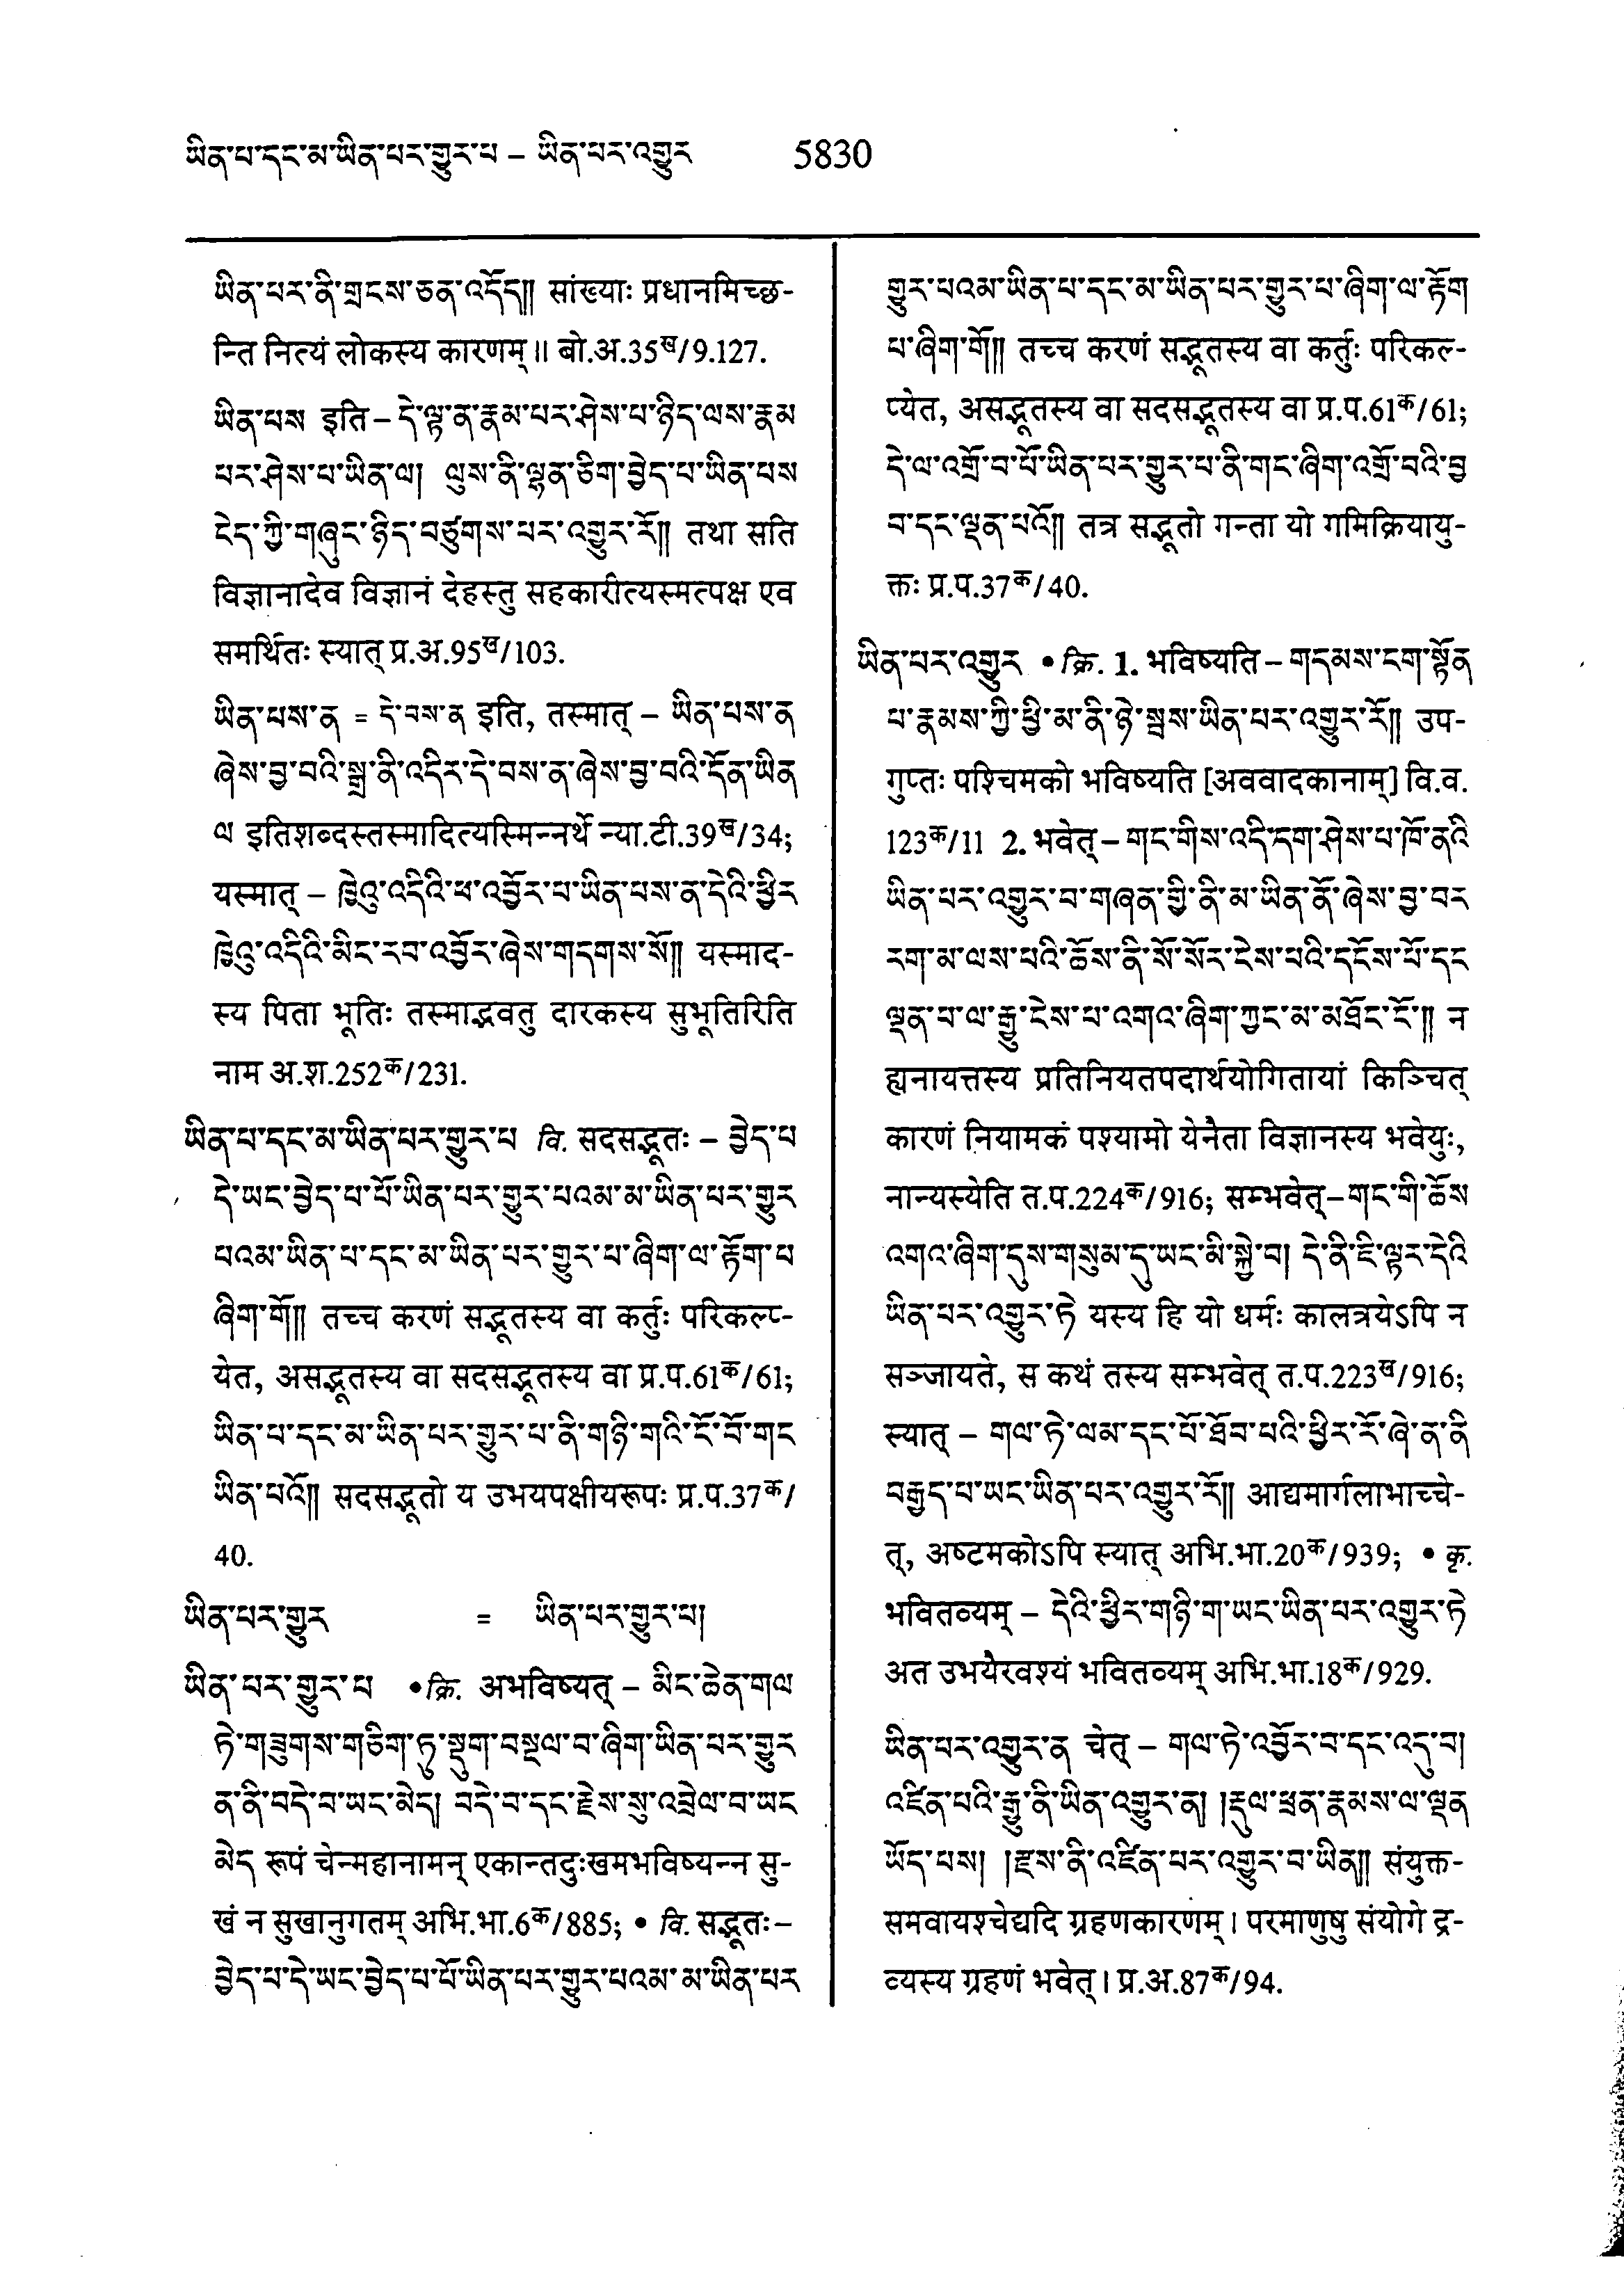 ཡིན་པ་དང་མ་ཡིན་པར་གྱུར་པ – ཡིན་པར་འགྱུར 5830
ཡིན་པར་ནི་གྲངས་ཅན་འདོད།། सांख्याः प्रधानमिच्छ-
न्ति नित्यं लोकस्य कारणम् ॥ बो.अ.35ख/9.127.
ཡིན་པས इति – དེ་ལྟ་ན་རྣམ་པར་ཤེས་པ་ཉིད་ལས་རྣམ
པར་ཤེས་པ་ཡིན་ལ། ལུས་ནི་ལྷན་ཅིག་བྱེད་པ་ཡིན་པས
ངེད་ཀྱི་གཞུང་ཉིད་བཙུགས་པར་འགྱུར་རོ།། तथा सति
विज्ञानादेव विज्ञानं देहस्तु सहकारीत्यस्मत्पक्ष एव
समर्थितः स्यात् प्र.अ.95ख/103.
ཡིན་པས་ན = དེ་བས་ན इति, तस्मात् – ཡིན་པས་ན
ཞེས་བྱ་བའི་སྒྲ་ནི་འདིར་དེ་བས་ན་ཞེས་བྱ་བའི་དོན་ཡིན
ལ इतिशब्दस्तस्मादित्यस्मिन्नर्थे न्या.टी.39ख/34;
यस्मात् – ཁྱེའུ་འདིའི་ཕ་འབྱོར་པ་ཡིན་པས་ན་དེའི་ཕྱིར
ཁྱེའུ་འདིའི་མིང་རབ་འབྱོར་ཞེས་གདགས་སོ།། यस्माद-
स्य पिता भूतिः तस्माद्भवतु दारकस्य सुभूतिरिति
नाम अ.श.252क/231.
ཡིན་པ་དང་མ་ཡིན་པར་གྱུར་པ वि. सदसद्भूतः – བྱེད་པ
དེ་ཡང་བྱེད་པ་པོ་ཡིན་པར་གྱུར་པའམ་མ་ཡིན་པར་གྱུར
པའམ་ཡིན་པ་དང་མ་ཡིན་པར་གྱུར་པ་ཞིག་ལ་རྟོག་པ
ཞིག་གོ།། तच्च करणं सद्भूतस्य वा कर्तुः परिकल्प-
येत, असद्भूतस्य वा सदसद्भूतस्य वा प्र.प.61क/61;
ཡིན་པ་དང་མ་ཡིན་པར་གྱུར་པ་ནི་གཉི་གའི་ངོ་བོ་གང
ཡིན་པའོ།། सदसद्भूतो य उभयपक्षीयरूपः प्र.प.37क/
40.
ཡིན་པར་གྱུར = ཡིན་པར་གྱུར་པ།
ཡིན་པར་གྱུར་པ • क्रि. अभविष्यत् – མིང་ཆེན་གལ
ཏེ་གཟུགས་གཅིག་ཏུ་སྡུག་བསྔལ་བ་ཞིག་ཡིན་པར་གྱུར
ན་ནི་བདེ་བ་ཡང་མེད། བདེ་བ་དང་རྗེས་སུ་འབྲེལ་བ་ཡང
མེད रूपं चेन्महानामन् एकान्तदुःखमभविष्यन्न सु-
खं न सुखानुगतम् अभि.भा.6क/885; • वि. सद्भूतः –
བྱེད་པ་དེ་ཡང་བྱེད་པ་པོ་ཡིན་པར་གྱུར་པའམ་མ་ཡིན་པར
གྱུར་པའམ་ཡིན་པ་དང་མ་ཡིན་པར་གྱུར་པ་ཞིག་ལ་རྟོག
པ་ཞིག་གོ།། तच्च करणं सद्भूतस्य वा कर्तुः परिकल्-
प्येत, असद्भूतस्य वा सदसद्भूतस्य वा प्र.प.61क/61;
དེ་ལ་འགྲོ་བ་པོ་ཡིན་པར་གྱུར་པ་ནི་གང་ཞིག་འགྲོ་བའི་བྱ
བ་དང་ལྡན་པའོ།། तत्र सद्भूतो गन्ता यो गमिक्रियायु-
क्तः प्र.प.37क/40.
ཡིན་པར་འགྱུར • क्रि. 1. भविष्यति – གདམས་ངག་སྟོན
པ་རྣམས་ཀྱི་ཕྱི་མ་ནི་ཉེ་སྦས་ཡིན་པར་འགྱུར་རོ།། उप-
गुप्तः पश्चिमको भविष्यति [अववादकानाम्] वि.व.
123क/11 2. भवेत् – གང་གིས་འདི་དག་ཤེས་པ་ཁོ་ནའི
ཡིན་པར་འགྱུར་བ་གཞན་གྱི་ནི་མ་ཡིན་ནོ་ཞེས་བྱ་བར
རག་མ་ལས་པའི་ཆོས་ནི་སོ་སོར་ངེས་པའི་དངོས་པོ་དང
ལྡན་པ་ལ་རྒྱུ་ངེས་པ་འགའ་ཞིག་ཀྱང་མ་མཐོང་ངོ་།། न
ह्यनायत्तस्य प्रतिनियतपदार्थयोगितायां किञ्चित्
कारणं नियामकं पश्यामो येनैता विज्ञानस्य भवेयुः,
नान्यस्येति त.प.224क/916; सम्भवेत् – གང་གི་ཆོས
འགའ་ཞིག་དུས་གསུམ་དུ་ཡང་མི་སྐྱེ་བ། དེ་ནི་ཇི་ལྟར་དེའི
ཡིན་པར་འགྱུར་ཏེ यस्य हि यो धर्मः कालत्रयेऽपि न
सञ्जायते, स कथं तस्य सम्भवेत् त.प.223ख/916;
स्यात् – གལ་ཏེ་ལམ་དང་པོ་ཐོབ་པའི་ཕྱིར་རོ་ཞེ་ན་ནི
བརྒྱད་པ་ཡང་ཡིན་པར་འགྱུར་རོ།། आद्यमार्गलाभाच्चे-
त्, अष्टमकोऽपि स्यात् अभि.भा.20क/939; • कृ.
भवितव्यम् – དེའི་ཕྱིར་གཉི་ག་ཡང་ཡིན་པར་འགྱུར་ཏེ
अत उभयैरवश्यं भवितव्यम् अभि.भा.18क/929.
ཡིན་པར་འགྱུར་ན चेत् – གལ་ཏེ་འབྱོར་བ་དང་འདུ་བ།
འཛིན་པའི་རྒྱུ་ནི་ཡིན་འགྱུར་ན། །རྡུལ་ཕྲན་རྣམས་ལ་ལྡན
ཡོད་པས། །རྫས་ནི་འཛིན་པར་འགྱུར་བ་ཡིན།། संयुक्त-
समवायश्चेद्यदि ग्रहणकारणम् । परमाणुषु संयोगे द्र-
व्यस्य ग्रहणं भवेत् । प्र.अ.87क/94.